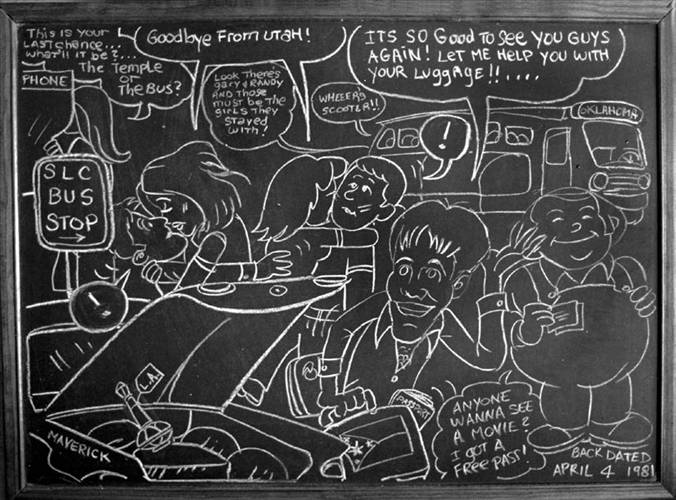 THIS IS YOUR
LAST CHANCE...
WHAT'LL IT BE?...
THE TEMPLE
OR
THE BUS?
GOODBYE FROM UTAH!
LOOK THERE'S
GARY & RANDY
AND THOSE
MUST BE THE
GIRLS THEY
STAYED
WITH!
WHEEER'S
SCOOTER!!
ITS SO GOOD TO SEE YOU GUYS
AGAIN! LET ME HELP YOU WITH
YOUR LUGGAGE!!....
!
OKLAHOMA
PHONE
SLC
BUS
STOP
!
L.A.
MAVERICK
PASSPORT
ANYONE
WANNA SEE
A MOVIE?
I GOT A
FREE PASS!
BACK DATED
APRIL 4 1981